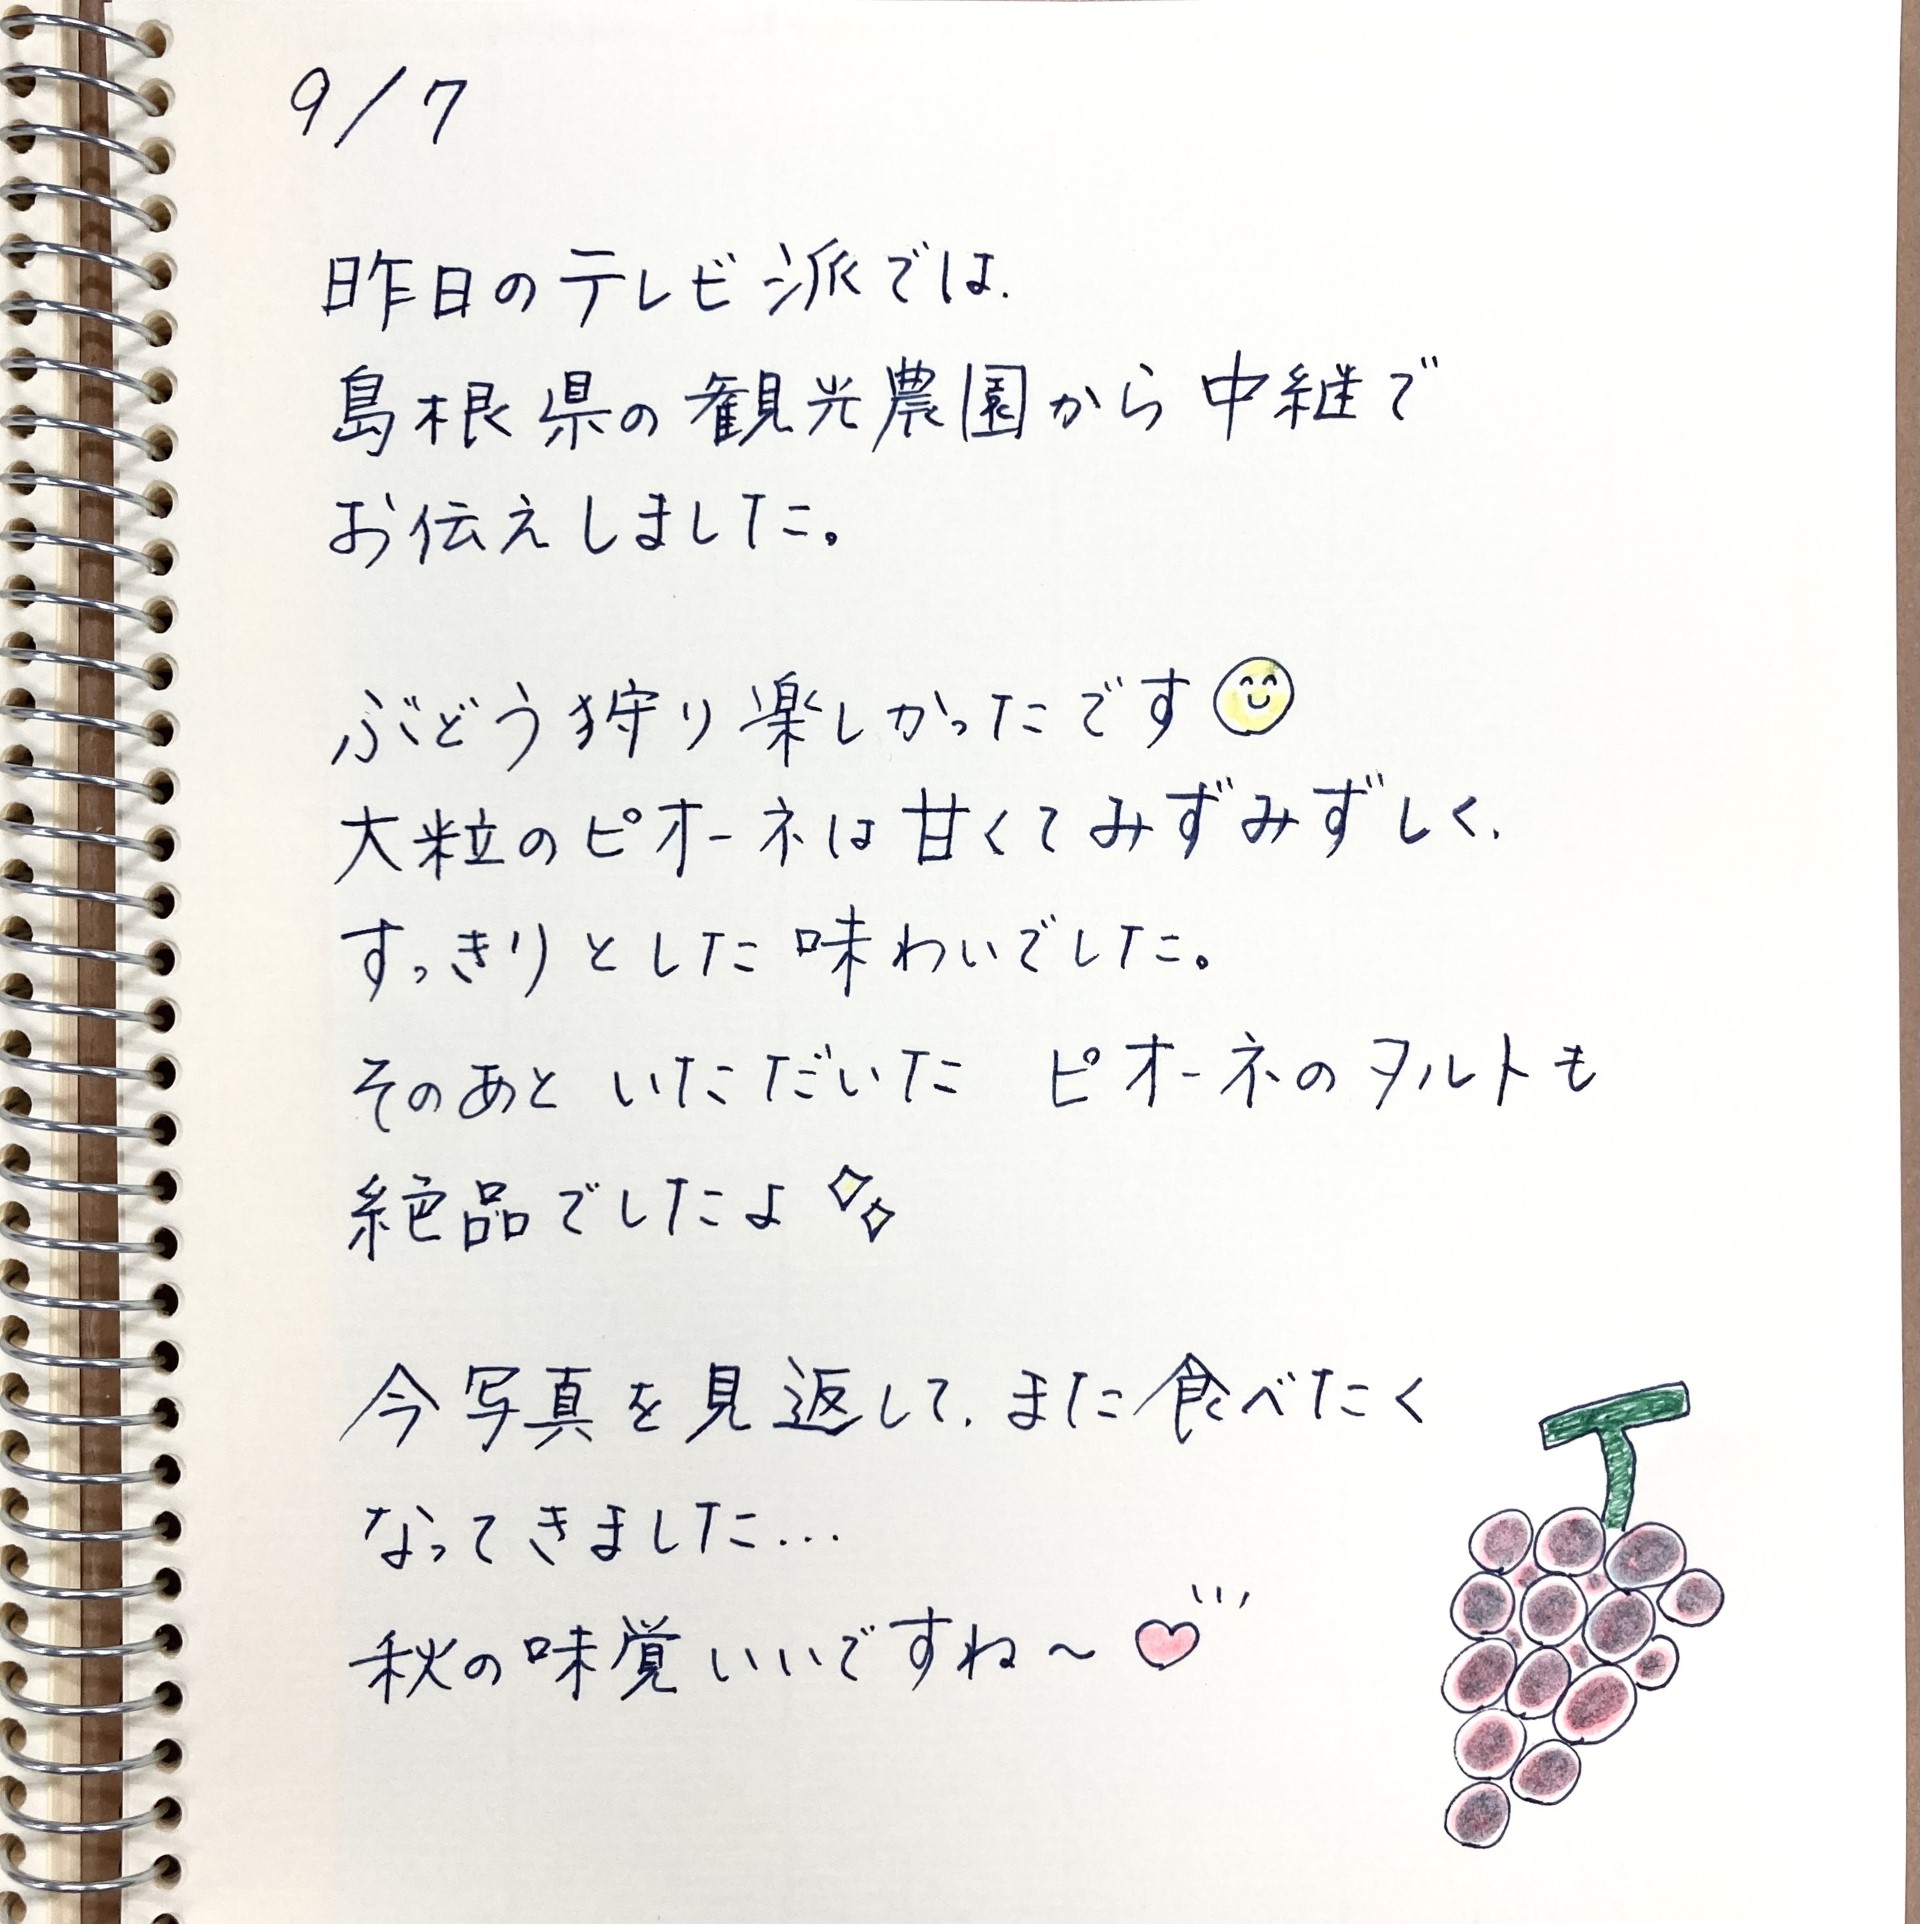 9/7
昨日のテレビ派では、
島根県の観光農園から中継で
お伝えしました。
ぶどう狩り楽しかったです
大粒のピオーネは甘くてみずみずしく、
すっきりとした味わいでした。
そのあと いただいた ピオーネのタルトも
絶品でしたよ
今写真を見返して、また食べたく
なってきました…
秋の味覚いいですね〜